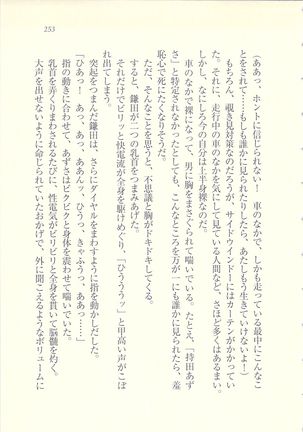 253
（ああっ、ホントに信じられない！　車のなかで、しかも走っている最中にこんなこ
とをされて……もしも誰かに見られたりしたら、あたしもう生きていけないよ！）
もちろん、覗き見対策なのだろうが、サイドウインドーにはカーテンがかかってい
た。それに、走行中の車のなかを気にして見ている人間など、さほど多くはあるまい。
しかし、なにしろ今の自分は上半身裸なのだ。
車のなかで裸になって、男に胸をまさぐられて喘いでいる。たとえ、「持田あず
さ」と特定されなかったとしても、こんなところを万が一にも誰かに見られたら、羞
恥心で死にたくなりそうだ。
ただ、そんなことを思うと、不思議と胸がドキドキしてくる。
すると、鎌田が二つの乳首をつまみあげた。
それだけでビリッと快電流が全身を駆けめぐり、「ひううぅッ」と甲高い声がこぼ
れ出てしまう。
突起をつまんだ鎌田は、さらにダイヤルをまわすように指を動かしだした。
「ひあっ！　あっ、あっ、ああんッ、ひうっ、きゃふうっ、ああっ……」
指の動きに合わせて、あずさはビクビクと身体を震わせて喘いでいた。
乳首を弄くりまわされるたびに、性電気がビリビリと全身を貫いて脳髄を灼く。
大声を出せないように命じられていたおかげで、外に聞こえるようなボリュームに